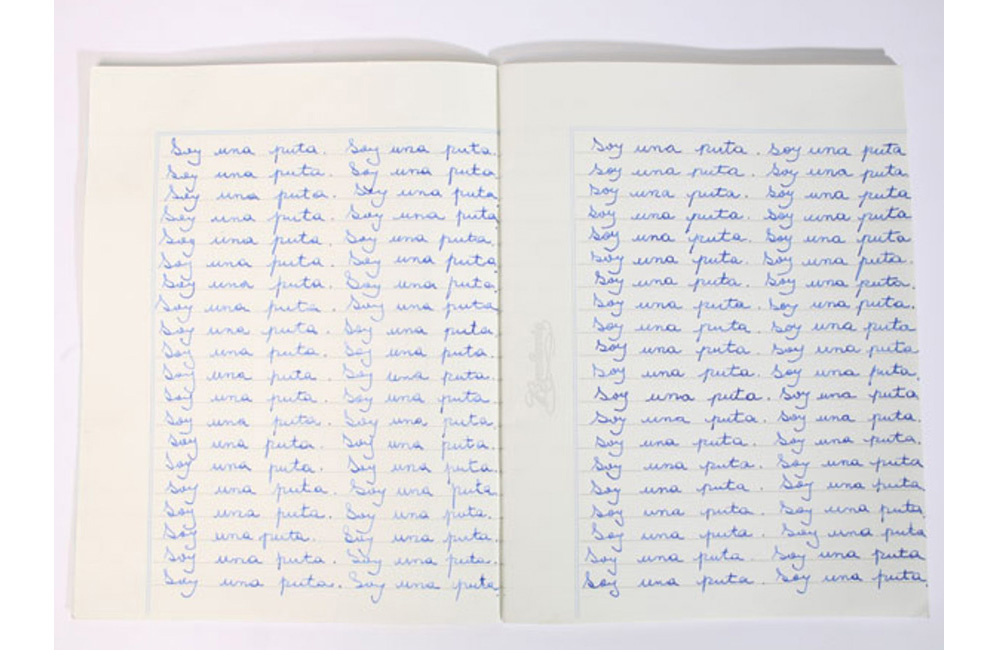 Soy una puta. Soy una puta.
Soy una puta. Soy una puta
Soy una puta. Soy una puta
Soy una puta. Soy una puta
Soy una puta. Soy una puta.
Soy una puta. Soy una puta
Soy una puta. Soy una puta.
Soy una puta. Soy una puta.
Soy una puta. Soy una puta.
Soy una puta. Soy una puta.
Soy una puta. Soy una puta.
Soy una puta. Soy una puta.
Soy una puta. Soy una puta.
Soy una puta. Soy una puta.
Soy una puta. Soy una puta.
Soy una puta. Soy una puta.
Soy una puta. Soy una puta.
Soy una puta. Soy una puta.
Soy una puta. Soy una puta.
Soy una puta. Soy una puta.
Soy una puta. Soy una puta
Soy una puta. Soy una puta.
Soy una puta. Soy una puta
Soy una puta. Soy una puta.
Soy una puta. Soy una puta.
Soy una puta. Soy una puta.
Soy una puta. Soy una puta.
Soy una puta. Soy una puta.
Soy una puta. Soy una puta
Soy una puta. Soy una puta
Soy una puta. Soy una puta.
Soy una puta. Soy una puta
Soy una puta. Soy una puta.
Soy una puta. Soy una puta.
Soy una puta. Soy una puta
Soy una puta. Soy una puta.
Soy una puta. Soy una puta
Soy una puta. Soy una puta
Soy una puta. Soy una puta
Soy una puta. Soy una puta.